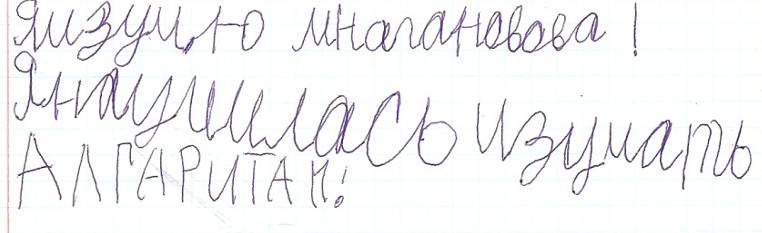 Яизучию мнагановова!
Янаучилась изучать
АЛГАРИТАМ!